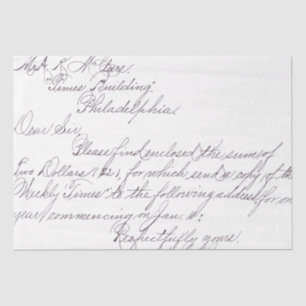 Mr. A. K. McClure.
"Times Building".
Philadelphia.
Dear Sir,
Please find enclosed the sum of
Two Dollars ($2), for which send a copy of the
Weekly "Times" to the following address for one
year, commencing on Jan. 1:
Respectfully yours.